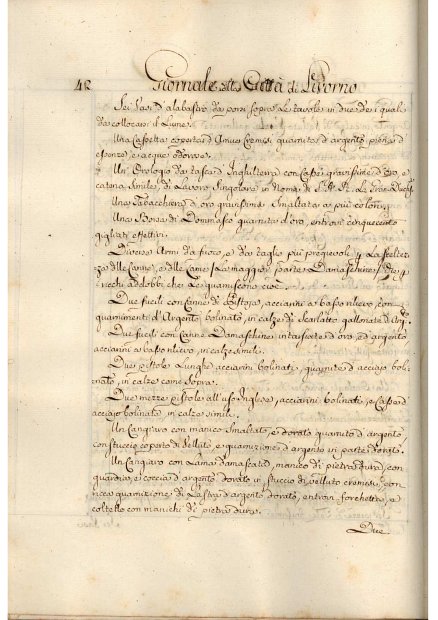 42 Giornale della Città di Livorno
Sei Vasi d'alabastro da porsi sopra Le tavole in due de i quali
da collocarsi il Lume.
Una Cassetta coperta d'Amuer Cremisi guarnita d'argento piena d'
essenze, e acque odorose.
Un' Orologio da tasca d'Inghilterra con Casse, e catena d'oro, e
catena simile, di Lavoro singolare in Nome di S. A. R. La
Una Tabacchiera d'oro grandissima Smaltata a più colori.
Una Borsa di Dommasco guarnita d'oro, entrovi cinquecento
gigliati effettivi.
Diverse Armi da fuoco, e da taglio più pregevoli p La sceltez-
za delle Canne, e delle Lame La maggior parte Damaschine, p
i ricchi addobbi che Le guarniscono cioè.
Due fucili con Canne di Pistoja, acciarini a basso rilievo con
guarnimenti d'Argento bolinato, in calze di Scarlatto gallonate d'Arg.to
Due fucili con Canne Damaschine intarsiate d'oro, ed argento
acciarini a basso rilievo, in calze simili.
Due Pistole Lunghe acciarini bolinati, guarnite d'acciajo boli-
nato, in calze come sopra.
Due mezze Pistole all'uso Inglese, acciarini bolinati, e Casse d'
acciajo bolinate in calze simili.
Un Cangiaro con manico Smaltato, e dorato guarnito d'argento
con stuccio coperto di Velluto, e guarnizione d'argento in parte dorato.
Un Cangiaro con Lama damascata, manico di pietra dura, con
guardia, e coccia d'argento dorato in stuccio di Vellato cremisi, con
ricca guarnizione di Lastra d'argento dorato, entrovi forchetta, e
coltello con manichi di pietra dura.
Due